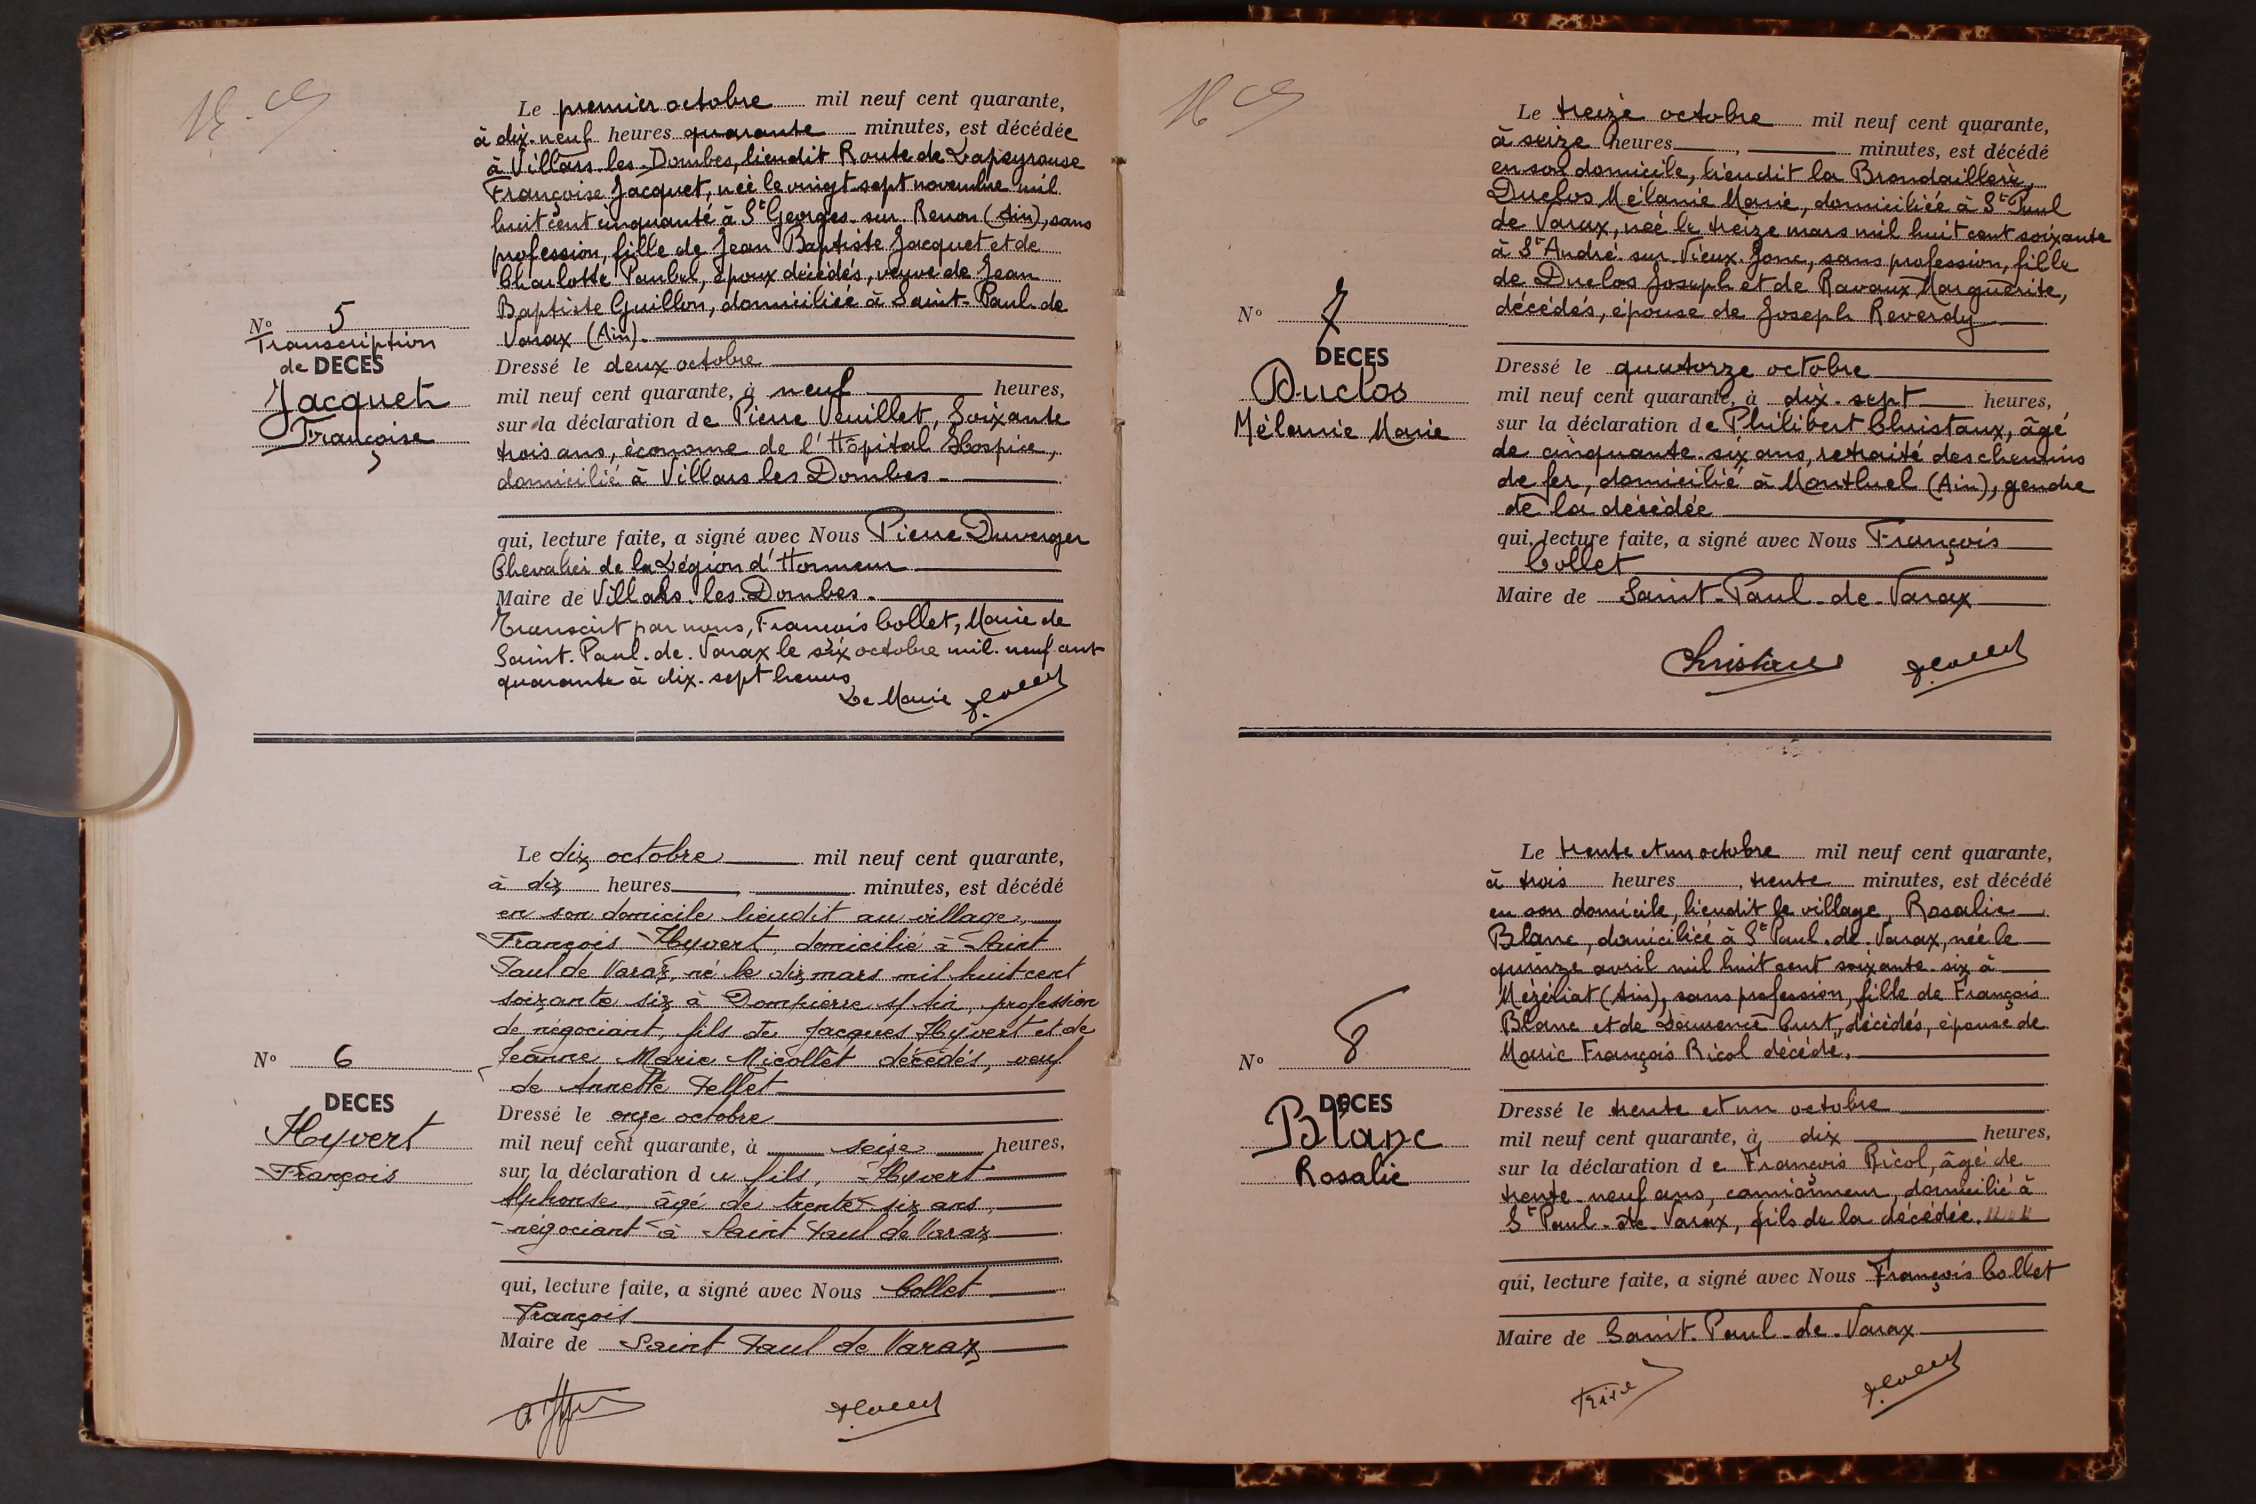 Le premier octobre mil neuf cent quarante,
à dix-neuf heures quarante minutes, est décédée
à Villars-les-Dombes, lieudit Route de Lapeyrouse
Françoise Jacquet, née le vingt sept novembre mil
huit cent cinquante à St Georges-sur-Renon (Ain), sans
profession, fille de Jean Baptiste Jacquet et de
Charlotte Paubel, époux décédés, veuve de Jean
Baptiste Guillon, domiciliée à Saint-Paul-de
Varax (Ain).
No 5
Transcription
de DECES
Jacquet
Françoise
Dressé le deux octobre
mil neuf cent quarante, à neuf heures,
sur la déclaration de Pierre Veuillet, Soixante
trois ans, économe de l'Hôpital Hospice,
domicilié à Villars les Dombes.
qui, lecture faite, a signé avec Nous Pierre Duverger
Chevalier de la Légion d'Honneur
Maire de Villars-les-Dombes.
Transcrit par nous, François Collet, Maire de
Saint-Paul-de-Varax le six octobre mil-neuf cent
quarante à dix-sept heures
Le Maire F.Collet
Le dix octobre mil neuf cent quarante,
à dix heures, minutes, est décédé
en son domicile lieudit au village,
François Hyvert, domicilié à Saint
Paul de Varax, né le dix mars mil huit cent
soixante six à Dompierre s/ Ain, profession
de négociant, fils de Jacques Hyvert et de
Jeanne Marie Micollet décédés, veuf
de Annette Pellet
No 6
DECES
Hyvert
François
Dressé le onze octobre
mil neuf cent quarante, à seize heures,
sur la déclaration du fils, Hyvert
Alphonse, âgé de trente-six ans,
négociant à Saint Paul de Varax
qui, lecture faite, a signé avec Nous Collet
François
Maire de Saint Paul de Varax
F.Collet
Le treize octobre mil neuf cent quarante,
à seize heures, minutes, est décédé
en son domicile, lieudit la Brondaillère,
Duclos Mélanie Marie, domiciliée à St Paul
de Varax, née le treize mars mil huit cent soixante
à St André-sur-Vieux-Jonc, sans profession, fille
de Duclos Joseph et de Ravaux Marguerite,
décédés, épouse de Joseph Reverdy
No 7
DECES
Duclos
Mélanie Marie
Dressé le quatorze octobre
mil neuf cent quarante, à dix-sept heures,
sur la déclaration de Philibert Christaux, âgé
de cinquante-six ans, retraité des chemins
de fer, domicilié à Montluel (Ain), gendre
de la décédée
qui, lecture faite, a signé avec Nous François
Collet
Maire de Saint-Paul-de-Varax
Christaux F.Collet
Le trente et un octobre mil neuf cent quarante,
à trois heures, trente minutes, est décédé
en son domicile, lieudit le village, Rosalie
Blanc, domiciliée à St Paul-de-Varax, née le
quinze avril mil huit cent soixante-six à
Mézériat (Ain), sans profession, fille de François
Blanc et de Laurence Curt, décédés, épouse de
Marie François Ricol décédé.
No 8
DECES
Blanc
Rosalie
Dressé le trente et un octobre
mil neuf cent quarante, à dix heures,
sur la déclaration de François Ricol, âgé de
trente-neuf ans, camionneur, domicilié à
St Paul-de-Varax, fils de la décédée.
qui, lecture faite, a signé avec Nous François Collet
Maire de Saint-Paul-de-Varax
F.Collet